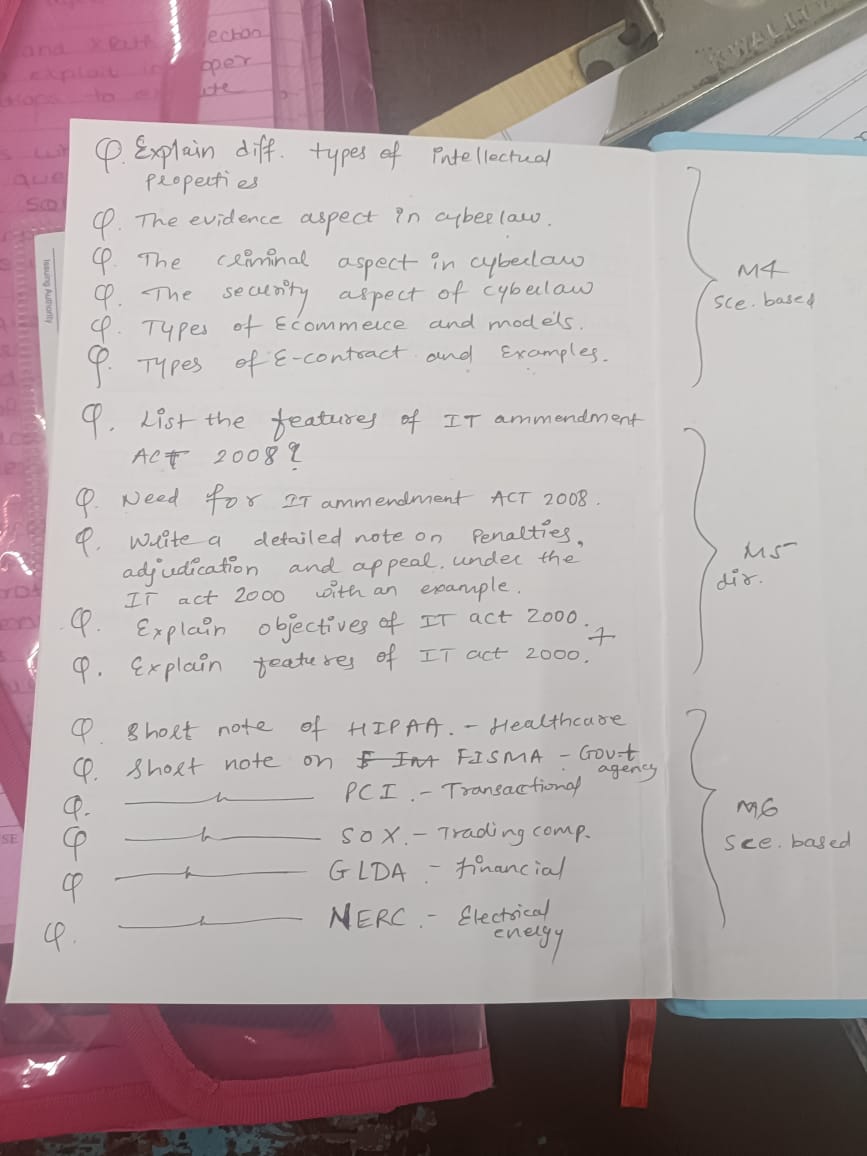 and
ection
exploit in
oper
tions to e
ute
que
Issuing Authority
QUALITY
Q. Explain diff. types of intellectual
properties
Q. The evidence aspect in cyberlaw.
Q. The criminal aspect in cyberlaw
Q. The security aspect of cyberlaw
Q. Types of Ecommerce and models.
Q. Types of E-contract and Examples.
M4
sce. based
Q. List the features of IT ammendment
ACT 2008?
Q. Need for IT ammendment ACT 2008.
Q. Write a detailed note on Penalties,
adjudication and appeal. under the
IT act 2000 with an example.
Q. Explain objectives of IT act 2000. +
Q. Explain features of IT act 2000.
M5
dir.
Q. Short note of HIPAA. - Healthcare
Q. Short note on FISMA - Govt
agency
Q. PCI. - Transactional
Q SOX. - Trading comp.
Q GLDA - financial
Q. NERC. - Electrical
energy
M6
sce. based
SE